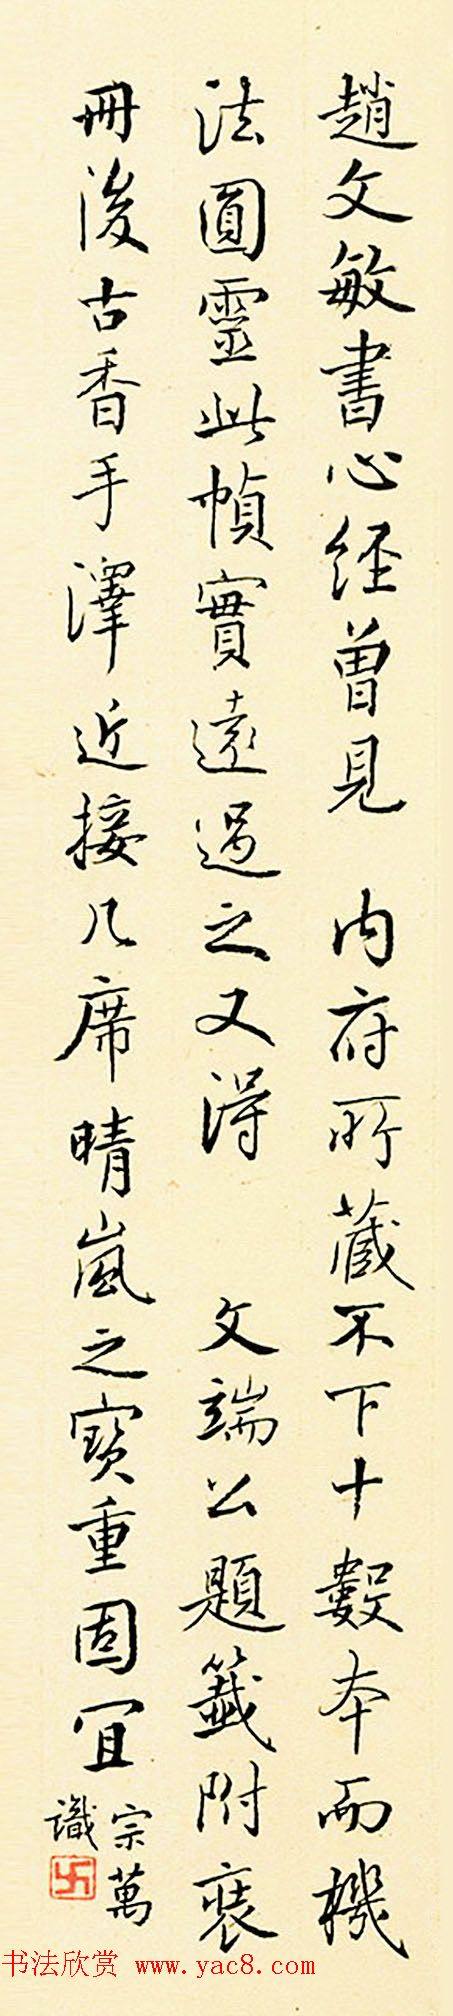 趙文敏書心經曽見 内府所蔵不下十數本而機
法圓靈此幀實遠過之又得 文端公題籤附裝
冊後古香手澤近接几席晴嵐之寶重固宜
宗萬
識
卍
书法欣赏 www.yac8.com